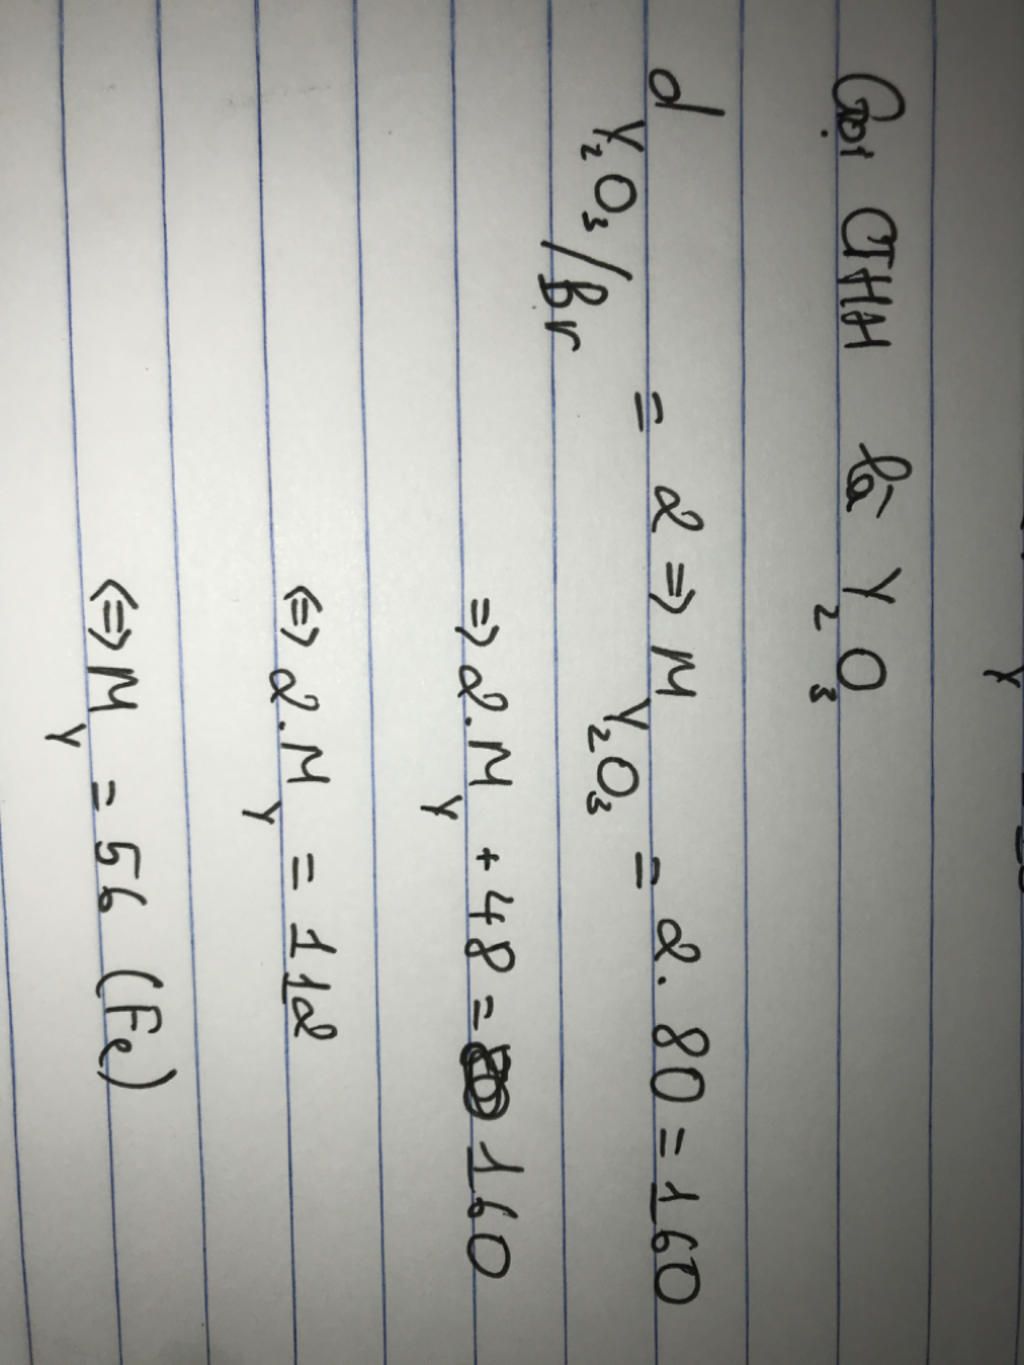 Gọi CTHH là Y₂O₃
d Y₂O₃/Br = 2 => M Y₂O₃ = 2.80 = 160
=> 2.M Y + 48 = 160
<=> 2.M Y = 112
<=> M Y = 56 (Fe)